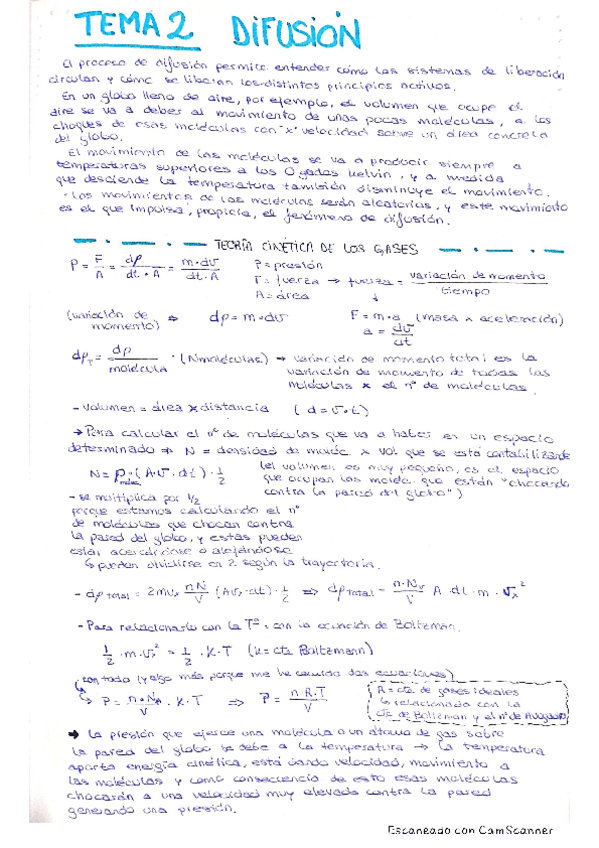 TEMA 2 DIFUSIÓN
El proceso de difusión permite entender cómo los sistemas de liberación
circulan y cómo se liberan los distintos principios activos.
En un globo lleno de aire, por ejemplo, el volumen que ocupe el
aire se va a deber al movimiento de unas pocas moléculas, a los
choques de esas moléculas con "x" velocidad sobre un área concreta
del globo.
El movimiento de las moléculas se va a producir siempre a
temperaturas superiores a los 0 grados kelvin, y a medida
que desciende la temperatura también disminuye el movimiento.
· Los movimientos de las moléculas serán aleatorios, y este movimiento
es el que impulsa, propicia, el fenómeno de difusión.
TEORÍA CINÉTICA DE LOS GASES
P = F/A = dp/dt·A = m·dv/dt·A
P = presión
F = fuerza → fuerza = variación de momento/tiempo
A = área
(variación de momento) ⇒ dp = m·dv
F = m·a (masa x aceleración)
a = dv/dt
dp_T = dp/molécula · (N moléculas) → variación de momento total es la
variación de momento de todas las
moléculas x el nº de moléculas.
- Volumen = área x distancia (d = v·t)
→ Para calcular el nº de moléculas que va a haber en un espacio
determinado ⇒ N = densidad de moléc x vol que se está contabilizando
N = ρ molec · (A·v·dt) · 1/2
(el volumen es muy pequeño, es el espacio
que ocupan las moléc. que están "chocando
contra la pared del globo")
- se multiplica por 1/2
porque estamos calculando el nº
de moléculas que chocan contra
la pared del globo, y estas pueden
estar acercándose o alejándose
↳ pueden dividirse en 2 según la trayectoria.
- dp Total = 2mvx nN/V (Avx·dt) · 1/2 ⇒ dp Total = n·N/V A·dt·m·vx²
- Para relacionarlo con la Tª, con la ecuación de Boltzman.
1/2 · m·vx² = 1/2 · K·T (K = cte Boltzmann)
con todo (y algo más porque me he comido dos ecuaciones)
↳ P = n·NA/V · K·T ⇒ P = n.R.T/V
R = cte de gases ideales
↳ relacionado con la
cte de Boltzman y el nº de Avogadro
→ La presión que ejerce una molécula o un átomo de gas sobre
la pared del globo se debe a la temperatura → la temperatura
aporta energía cinética, está dando velocidad, movimiento a
las moléculas y como consecuencia de esto esas moléculas
chocarán a una velocidad muy elevada contra la pared
generando una presión.
Escaneado con CamScanner